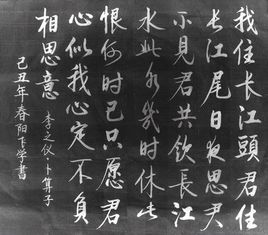 我住长江頭君住
长江尾日夜思君
不見君共饮長江
水此水幾时休此
恨何时已只愿君
心似我心定不負
相思意
李之仪·卜算子
己丑年春阳飞学書